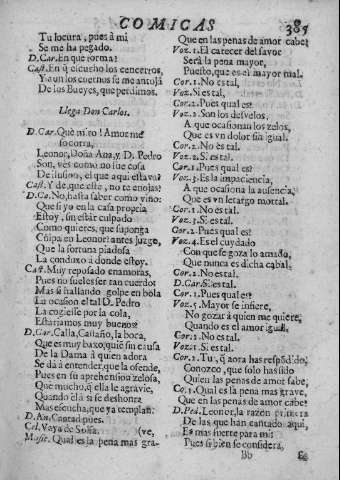 COMICAS 385
Tu locura, pues à mi
Se me ha pegado.
D.Car. En que forma?
Cast. En q̃ escucho los cencerros,
Y a un los cuernos se me antojã
De los Bueyes, que perdimos.
Llega Don Carlos.
D.Car. Què miro! Amor me
socorra,
Leonor, Doña Ana, y D. Pedro
Son, vès como no fue cosa
De ilusion, el que aqui estava?
Cast. Y de que estè, no te enojas?
D.Ca. No, hasta saber como vino:
Que si yo en la casa propria
Estoy, sin estàr culpado
Como quieres, que suponga
Culpa en Leonor? antes juzgo,
Que la fortuna piadosa
La conduxo à donde estoy.
Cast. Muy reposado enamoras,
Pues no sueles ser tan cuerdo;
Mas si hallando golpe en bola
La ocasion el tal D. Pedro
La cogiesse por la cola,
Estariamos muy buenos?
D.Car. Calla, Castaño, la boca,
Que es muy baxo, quiẽ sin causa
De la Dama à quien adora
Se dà à entender, que la ofende,
Pues en su aprehension zelosa,
Que mucho, q̃ ella le agravie,
Quando èl à sì se deshonra
Mas escucha, que ya templan.
D.An. Cantad pues.
Cel. Vaya de Solfa. (ve,
Music. Qual es la pena mas gra-
Que en las penas de amor cabe?
Voz.1. El carecer del favor
Serà la pena mayor,
Puesto, que es el mayor mal.
Cor.1. No es tal.
Voz.1. Si es tal.
Cor.2. Pues qual es?
Voz.2. Son los desvelos,
A que ocasionan los zelos,
Que es vn dolor sin igual.
Cor.2. No es tal.
Voz.2. Si es tal.
Cor.1. Pues qual es?
Voz.3. Es la impaciencia,
A que ocasiona la ausencia,
Que es vn letargo mortal.
Cor.1. No es tal.
Voz.3. Si es tal.
Cor.2. Pues qual es?
Voz.4. Es el cuydado
Con que se goza lo amado,
Que nunca es dicha cabal.
Cor.2. No es tal.
D.Car. Si es tal.
Cor.1. Pues qual es?
Voz.5. Mayor se infiere,
No gozar à quien me quiere,
Quando es el amor igual.
Cor.1. No es tal.
Voz.5. Si es tal.
Cor.2. Tu, q̃ aora has respõdido,
Conozco, que solo has sido
Quien las penas de amor sabe,
Co.1. Qual es la pena mas grave,
Que en las penas de amor cabe?
D.Ped. Leonor, la razon primera
De las que han cantado aqui,
Es mas fuerte para mi;
Pues si bien se considera,
Bb Es